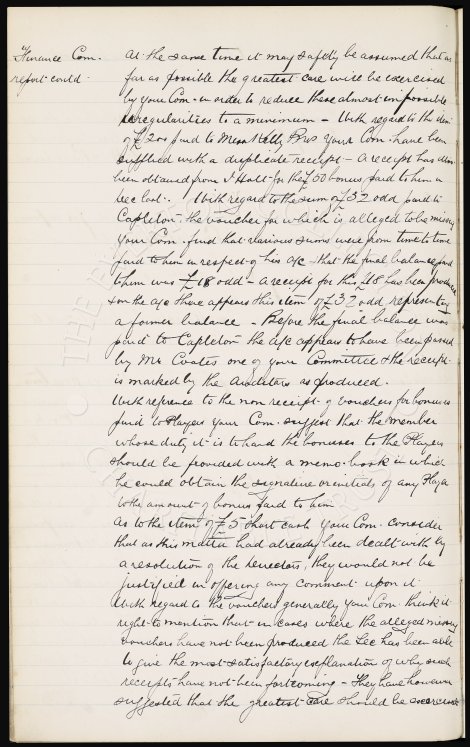 Finance Com.
report contd.
At the same time it may safely be assumed that as
far as possible the greatest care will be exercised
by your Com. in order to reduce these almost impossible
irregularities to a minimum – With regard to the item
of £200 paid to Messrs Kelly Bros your Com. have been
supplied with a duplicate receipt – A receipt has also
been obtained from J Holt for the £50 bonus paid to him in
Dec last. With regard to the sum of £32 odd paid to
Capleton the voucher for which is alleged to be missing
your Com. find that various sums were from time to time
paid to him in respect of his a/c – that the final balance paid
him was £18 odd – a receipt for this £18 has been produced
& on the a/c there appears this item of £32 odd representing
a former balance – Before the final balance was
paid to Capleton the a/c appears to have been passed
by Mr Coates one of your Committee & the receipt
is marked by the Auditors as produced.
With reference to the non receipt of vouchers for bonuses
paid to Players your Com. suggest that the member
whose duty it is to hand the bonuses to the Players
should be provided with a memo. book in which
he could obtain the signature or initials of any Player
to the amount of bonus paid to him
As to the item of £5 short cash your Com. consider
that as this matter had already been dealt with by
a resolution of the Directors, they would not be
justified in offering any comment upon it
With regard to the vouchers generally your Com. think it
right to mention that in cases where the alleged missing
vouchers have not been produced the Sec has been able
to give the most satisfactory explanation of why such
receipts have not been forthcoming – They have however
suggested that the greatest care should be exercised